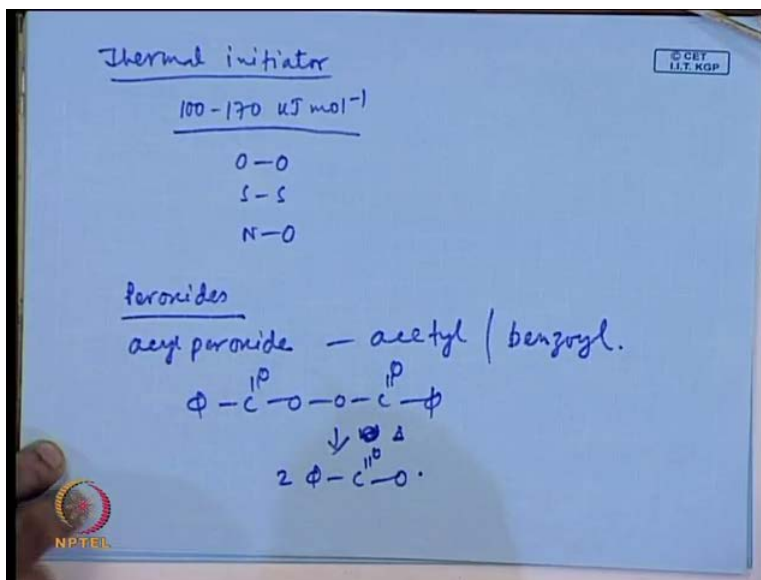 Thermal initiator
© CET
I.I.T. KGP
100-170 kJ mol⁻¹
O-O
S-S
N-O
Peroxides
acyl peroxide - acetyl / benzoyl.
O O
Φ-C-O-O-C-Φ
↓ Δ
O
2 Φ-C-O·
NPTEL